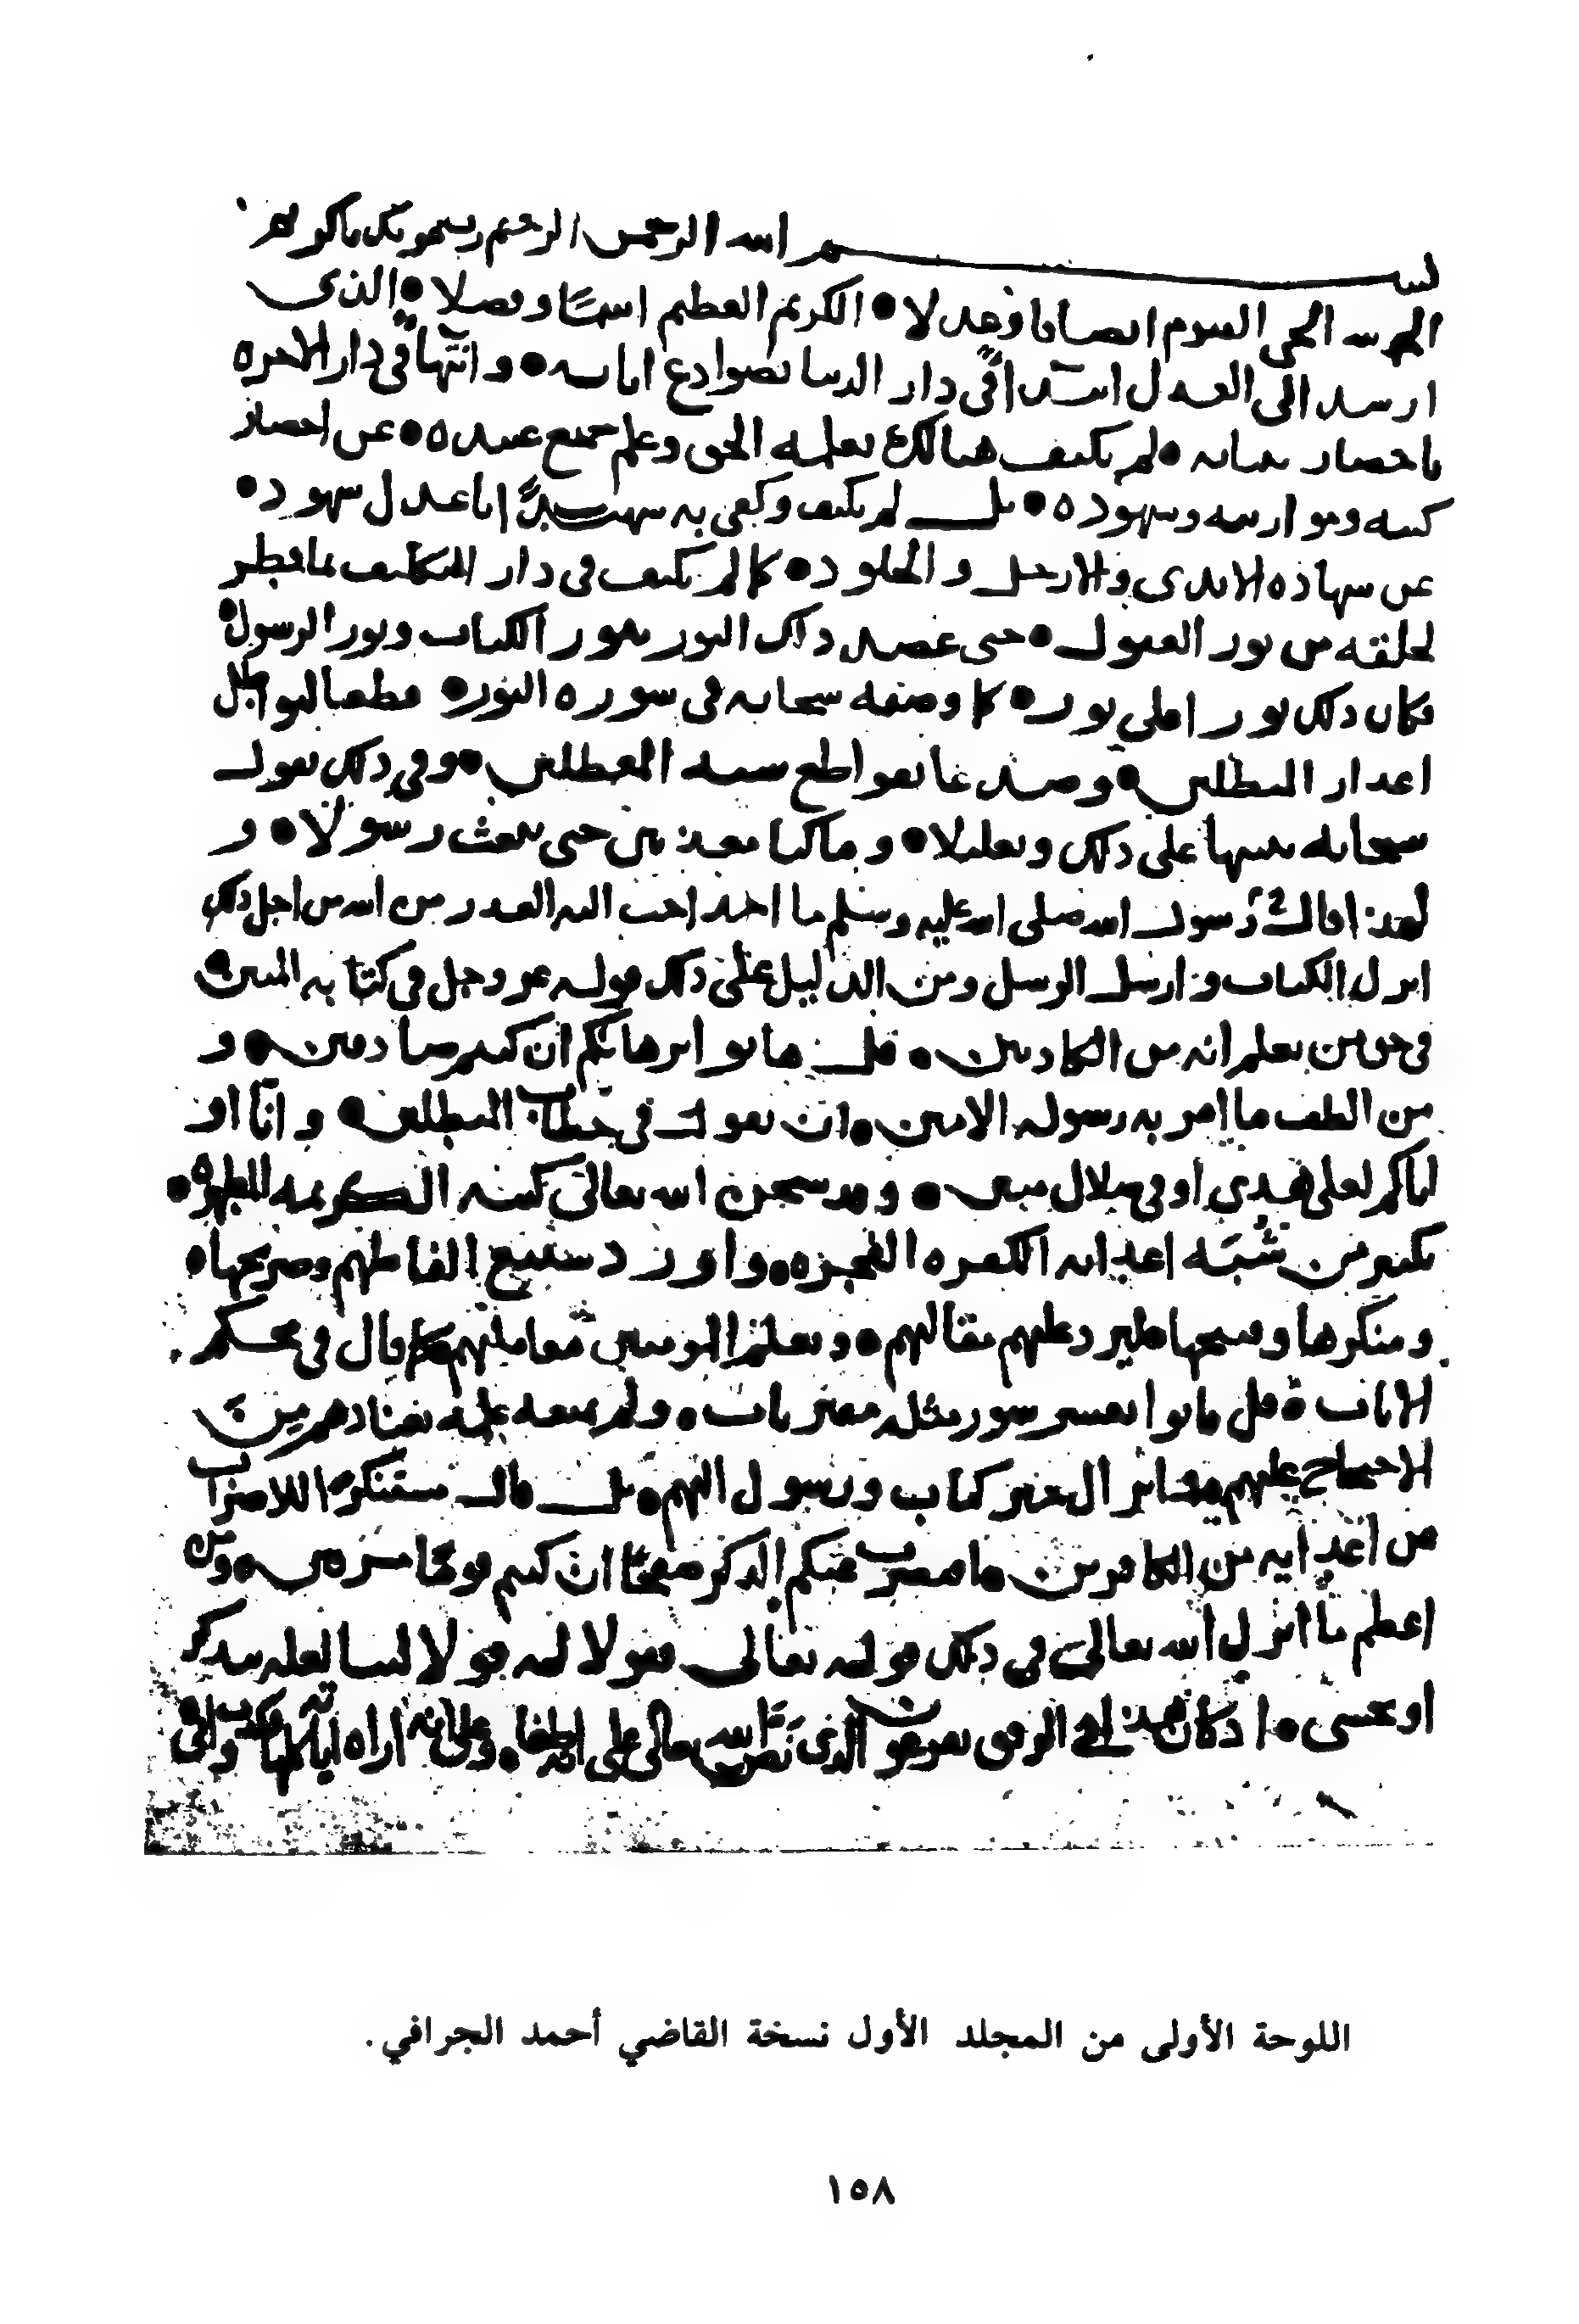 بسم الله الرحمن الرحيم وبعونك يا كريم
الحمد لله الحي القيوم اتصافا وعدلا الكريم العظيم اسما وفضلا الذي
ارسد الى العدل ابتدا في دار الدنيا بصوادع اياته وانتهاً في دار الاخره
باحضار بيناته ولم يكتف هنالك بعلمه الحق وعلم جميع عبيده عن احضار
كتبه وموازينه وشهوده بل لم يكتف وكفى به شهيداً باعدل شهود
عن شهاده الايدي والارجل والجلود كما لم يكتف في دار التكليف بما فطر
لخلقه من نور العقول حتى عضد ذلك النور بنور الكتاب ونور الرسول
فكان ذلك نورا على نور كما وصفه سبحانه في سوره النور قطعا لبواطل
اعذار المبطلين وصدعا بقواطع سمعه المعطلين وفي ذلك يقول
سبحانه تنبيها على ذلك وتعليلا وما كنا معذبين حتى نبعث رسولا و
لهذا قال رسول الله صلى الله عليه وسلم ما احد احب اليه العذر من الله من اجل ذلك
انزل الكتاب وارسل الرسل ومن الدليل على ذلك قوله عز وجل في كتابه المبين
في حق من يعلم انه من الكاذبين قل هاتوا برهانكم ان كنتم صادقين و
من الطف ما امر به رسوله الامين ان يقول في خطاب المبطلين وانا او
اياكم لعلى هدى او في ضلال مبين وقد شحن الله تعالى كتبه الكريمه المطهره
بكثير من شبه اعدائه الكفره الفجره واورد شنيع الفاظهم وصريحها
ومنكرها وقبيحها ليرد عليهم مقالهم وتعلم المومنين معاملتهم كما قال في محكم
الايات قل فاتوا بعشر سور مثله مفتريات ولم يمنعه علمه بعنادهم من
الاحتجاج عليهم كتاب ورسول اليهم بل قال مستنكرا للاضراب
من اعدايه من الكافرين افنضرب عنكم الذكر صفحا ان كنتم قوما مسرفين ومن
اعظم ما انزل الله تعالى في ذلك قوله تعالى فقولا له قولا لينا لعله يتذكر
او يخشى اذ كان هذا في الرفق بفرعون الذي نص الله تعالى على انه طغا وعلى انه اراه اياته كلها فكذب وابى
اللوحة الأولى من المجلد الأول نسخة القاضي أحمد الجرافي.
١٥٨